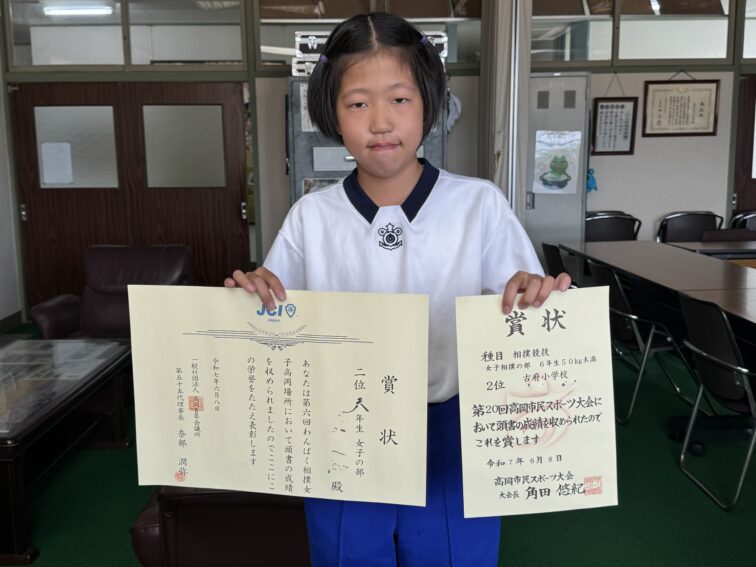 JCI
Japan
賞状
二位
六年生 女子の部
殿
あなたは第六回わんぱく相撲女
子高岡場所において頭書の成績
を収められましたのでここにこ
の栄誉をたたえ表彰します
令和七年六月八日
一般社団法人高岡青年会議所
第五十五代理事長
賞状
種目 相撲競技
女子相撲の部 6年生50kg未満
2位 古府小学校
第20回高岡市民スポーツ大会に
おいて頭書の成績を収められたので
これを賞します
令和7年6月8日
高岡市民スポーツ大会
大会長 角田悠紀